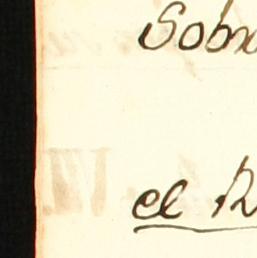 Sobr
el R